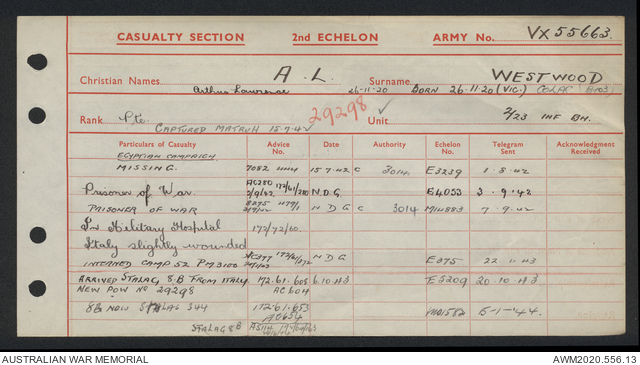 CASUALTY SECTION 2nd ECHELON ARMY No. VX 55663.
Christian Names A. L. Surname WESTWOOD
Arthur Lawrence 26-11-20 BORN 26.11.20 (VIC.) COLAC
Rank Pte. 29298 Unit 2/23 INF BN.
CAPTURED MATRUH 15.7.42
Particulars of Casualty Advice No. Date Authority Echelon No. Telegram Sent Acknowledgment Received
EGYPTIAN CAMPAIGN
MISSING. 7082 15.7.42 C 3014 E3239 1.8.42
Prisoner of War. N.D.G E4053 3.9.42
PRISONER OF WAR N D G C 3014 7.9.42
In Military Hospital 172/72/60.
Italy slightly wounded
INTERNED CAMP 52 PM 3100 N D G E875 22.11.43
ARRIVED STALAG 8B FROM ITALY 172.61.605 6.10.43 E5209 20.10.43
NEW POW NO 29298 AC 604
8B NOW STALAG 344 172.61.653 5-1-44.
AC654
STALAG 8B
AUSTRALIAN WAR MEMORIAL AWM2020.556.13